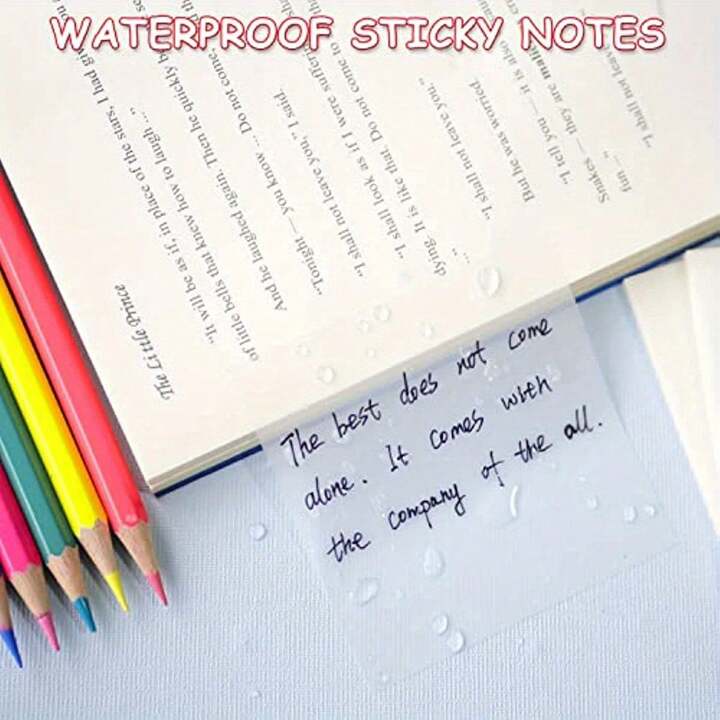 WATERPROOF STICKY NOTES
The Little Prince
"It will be as if, in place of the stars, I had
of little bells that knew how to laugh ..."
And he laughed again. Then he quickly
"Tonight — you know ... Do not come,
"I shall not leave you, I said.
"I shall look as if I were
dying. It is like that. Do not come to
..."
"I shall not leave you."
But he was worried.
"I tell you — it is also
Snakes — they are
fun ..."
"I shall not
The best does not come
alone. It comes with
the company of the all.